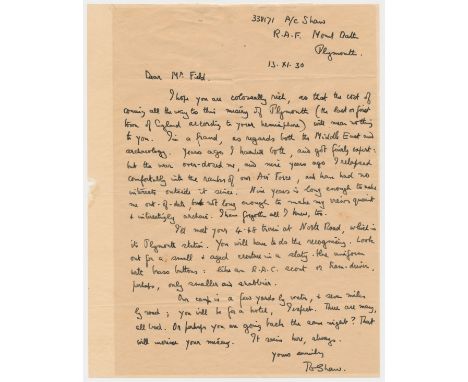 338171 A/c Shaw
R.A.F. Mount Batten
Plymouth.
13. XI. 30
Dear Mr. Field.
I hope you are colossally rich, so that the cost of
coming all the way to this misery of Plymouth (the last or first
town of England according to your hemisphere) will mean nothing
to you. I'm a fraud, as regards both the Middle East and
archaeology. Years ago I haunted both, and got fairly expert:
but the war over-dosed me, and nine years ago I relapsed
comfortably into the ranks of our Air Force, and have had no
interests outside it since. Nine years is long enough to make
me out-of-date but not long enough to make my views quaint
& interestingly archaic. I have forgotten all I knew, too.
I'll meet your 4-44 train at North Road, which is
its Plymouth station. You will have to do the recognising. Look
out for a small & aged creature in a slaty-blue uniform
with brass buttons: like an R.A.C. scout or tram-driver,
perhaps, only smaller and shabbier.
Our camp is a few yards by water, & seven miles
by road; you will be for a hotel, I expect. There are many,
all bad. Or perhaps you are going back the same night? That
will increase your misery. It rains here, always.
Yours sincerely
TE Shaw.